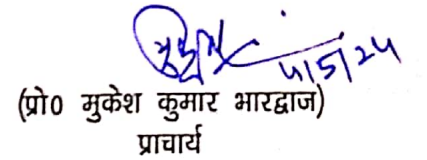 4/5/24
(प्रो0 मुकेश कुमार भारद्वाज)
प्राचार्य